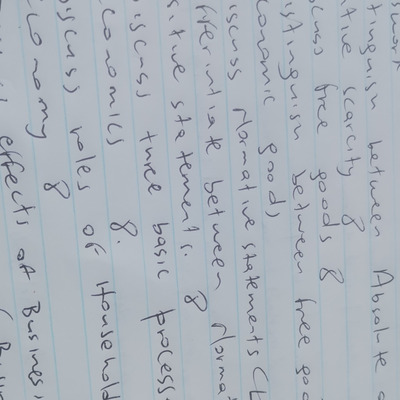 tinguish between Absolute
tive scarcity 8
cuss free goods 8
istinguish between free goo
conomic goods
iscuss Normative statements (
ferintiate between Norma
sitive statements. 8
iscuss three basic process
conomics 8.
iscuss roles of Household
conomy 8
effects of Busines